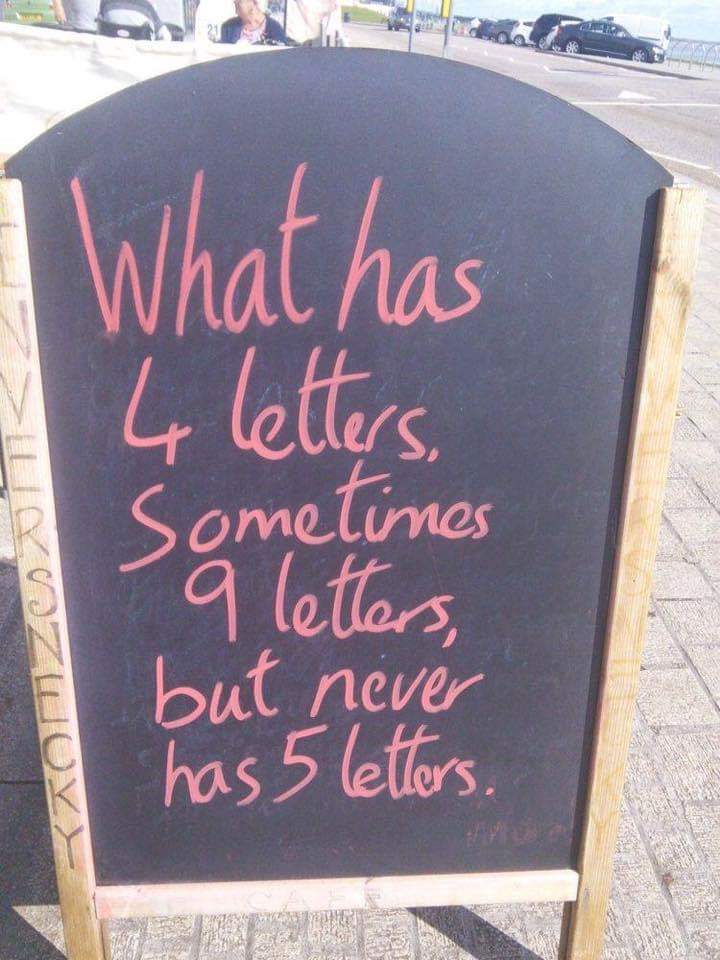 What has
4 letters,
Sometimes
9 letters,
but never
has 5 letters.
CAFE
21